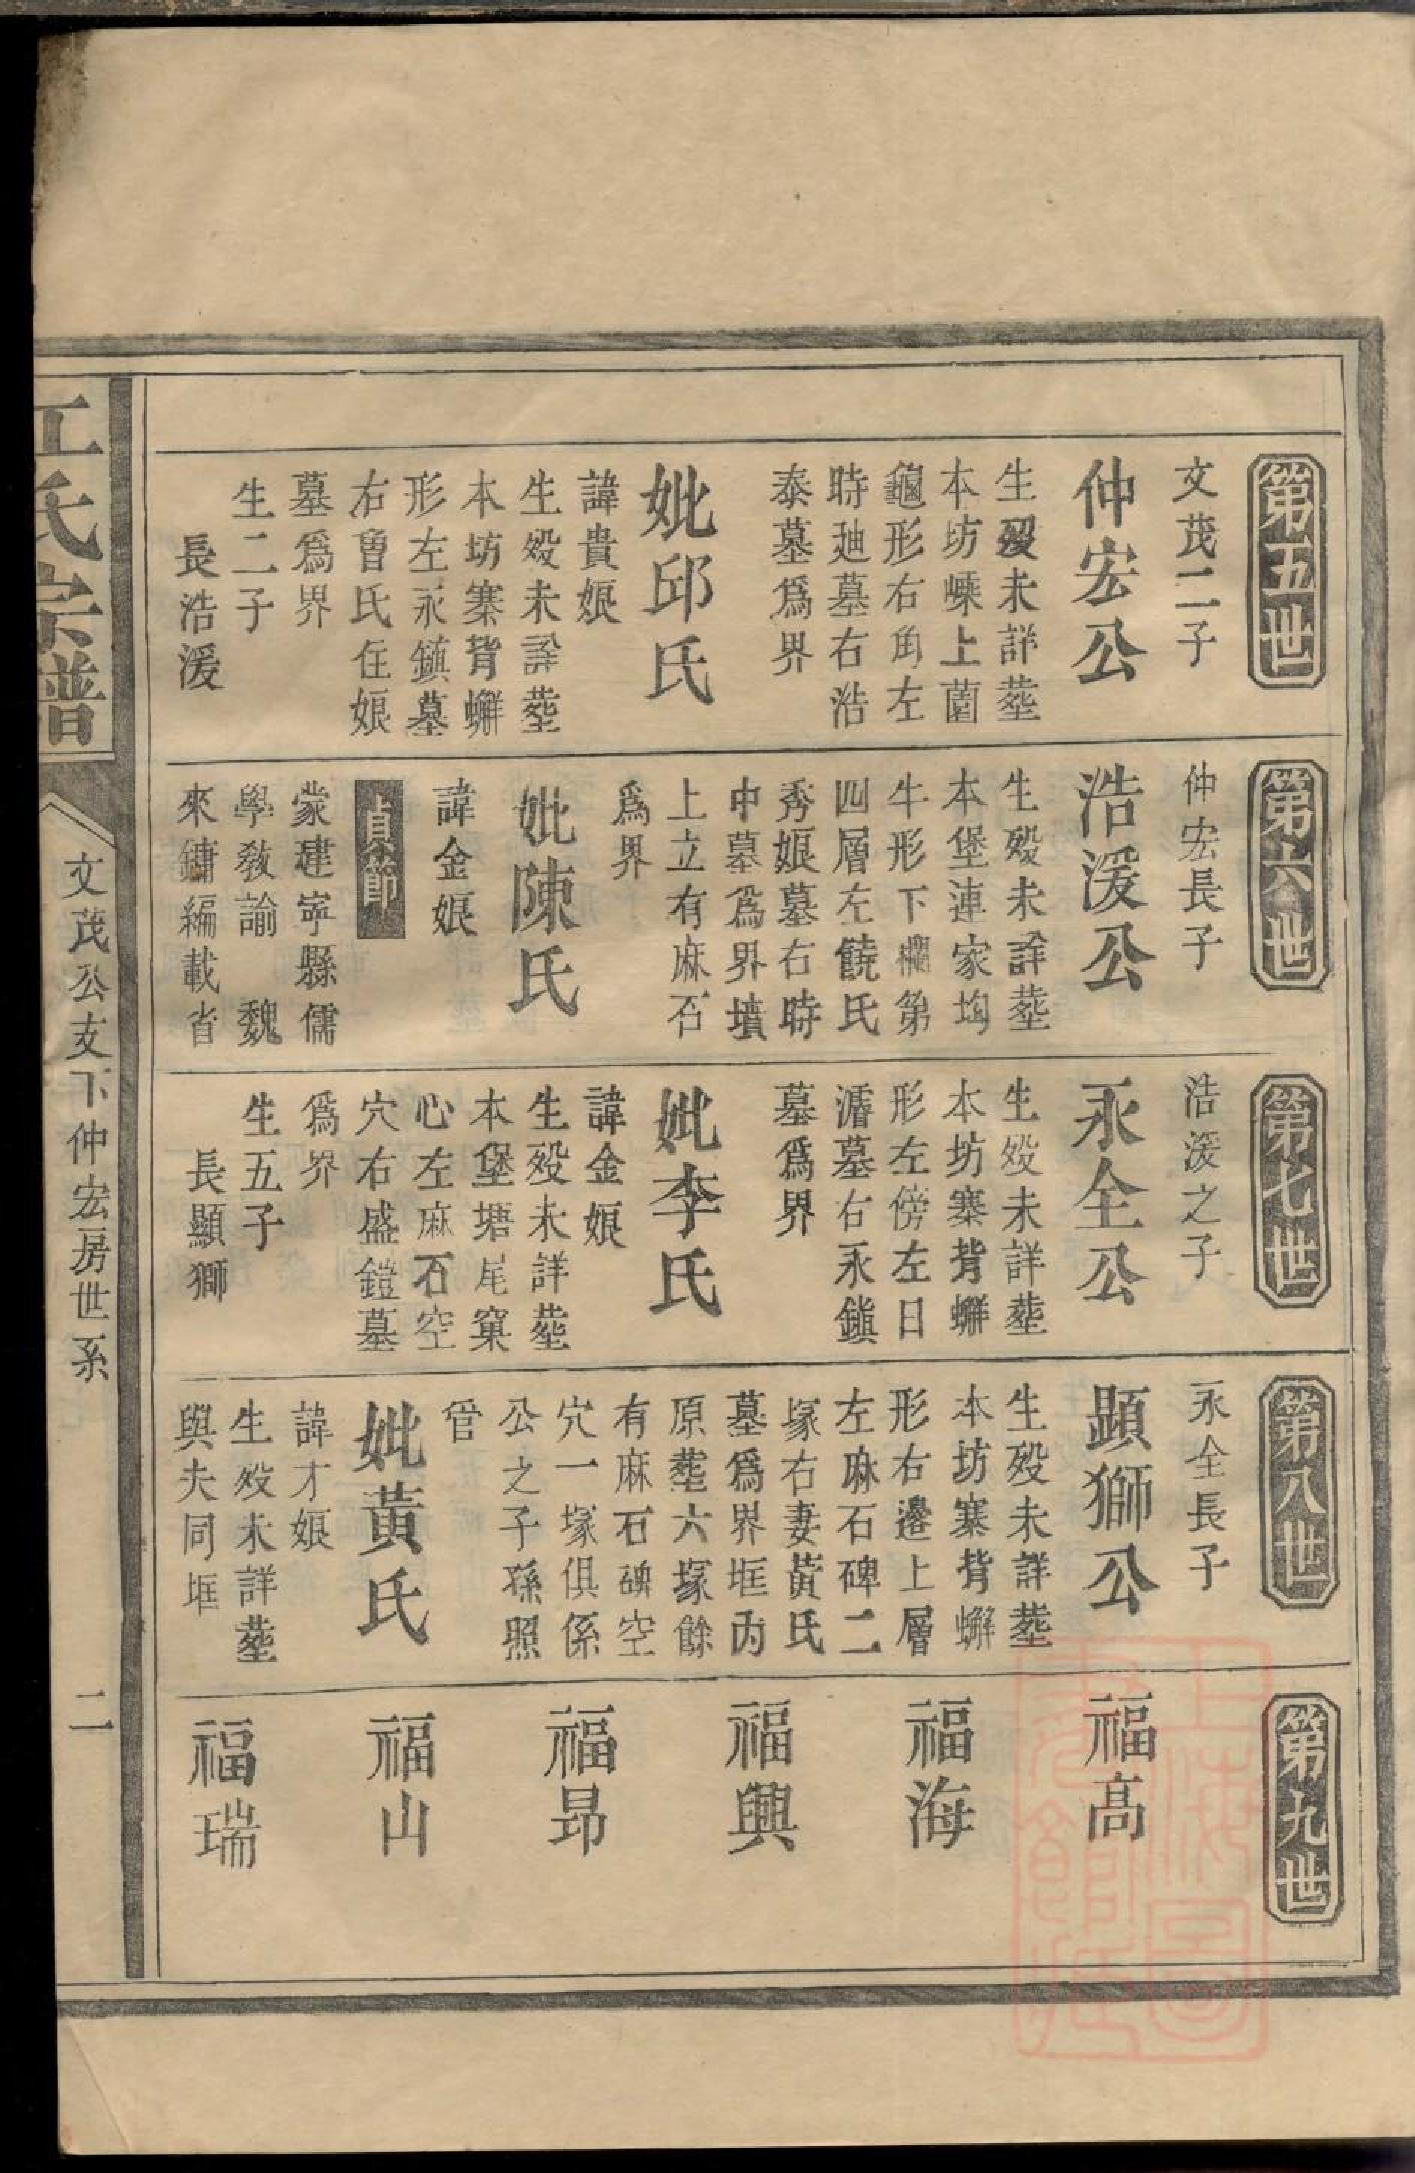 第五世
文茂二子
仲宏公
生歿未詳葬
本坊嵊上薗
龜形右角左
時迪墓右浩
泰墓爲界
妣邱氏
諱貴娘
生歿未詳葬
本坊寨背螄
形左永鎮墓
右曾氏任娘
墓爲界
生二子
長浩湲
第六世
仲宏長子
浩湲公
生歿未詳葬
本堡連家坳
牛形下欄第
四層左饒氏
秀娘墓右時
中墓爲界墳
上立有麻石
爲界
妣陳氏
諱金娘
貞節
蒙建寧縣儒
學敎諭 魏
來鏞編載省
第七世
浩湲之子
永全公
生歿未詳葬
本坊寨背螄
形左傍左日
濬墓右永鎮
墓爲界
妣李氏
諱金娘
生歿未詳葬
本堡塘尾窠
心左麻石空
穴右盛鎧墓
爲界
生五子
長顯獅
第八世
永全長子
顯獅公
生歿未詳葬
本坊寨背螄
形右邊上層
左麻石碑二
塚右妻黃氏
墓爲界堆內
原葬六塚餘
有麻石碑空
穴一塚俱係
公之子孫照
管
妣黃氏
諱才娘
生歿未詳葬
與夫同堆
第九世
福高
福海
福興
福昂
福山
福瑞
江氏宗譜
文茂公支下仲宏房世系
二